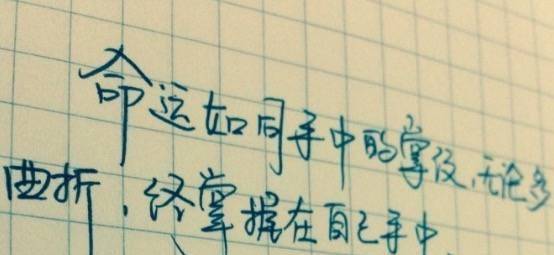 命运如同手中的掌纹,无论多
曲折,终掌握在自己手中